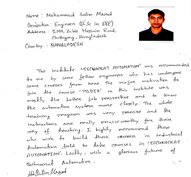 Name : Mohammad Salim Masud
Designation : Engineer (B.Sc in EEE)
Address : 2144, Zakir Hossain Road,
Chittagong, Bangladesh
Country : BANGLADESH
The Institute "TECHNOCRAT AUTOMATION" was recommended
to me by some fellow engineers who has undergone
some courses from here. The major motivation to
join the course in this institute was
really the future job perspective and to know
the automation system more closely. The whole
training program was very concise and the
instructors are really praiseworthy for their
way of teaching. I highly recommend those
who wish to build their careers in industrial
Automation field to take courses in "TECHNOCRAT
AUTOMATION". Lastly, wish a glorious future of
Technocrat Automation.